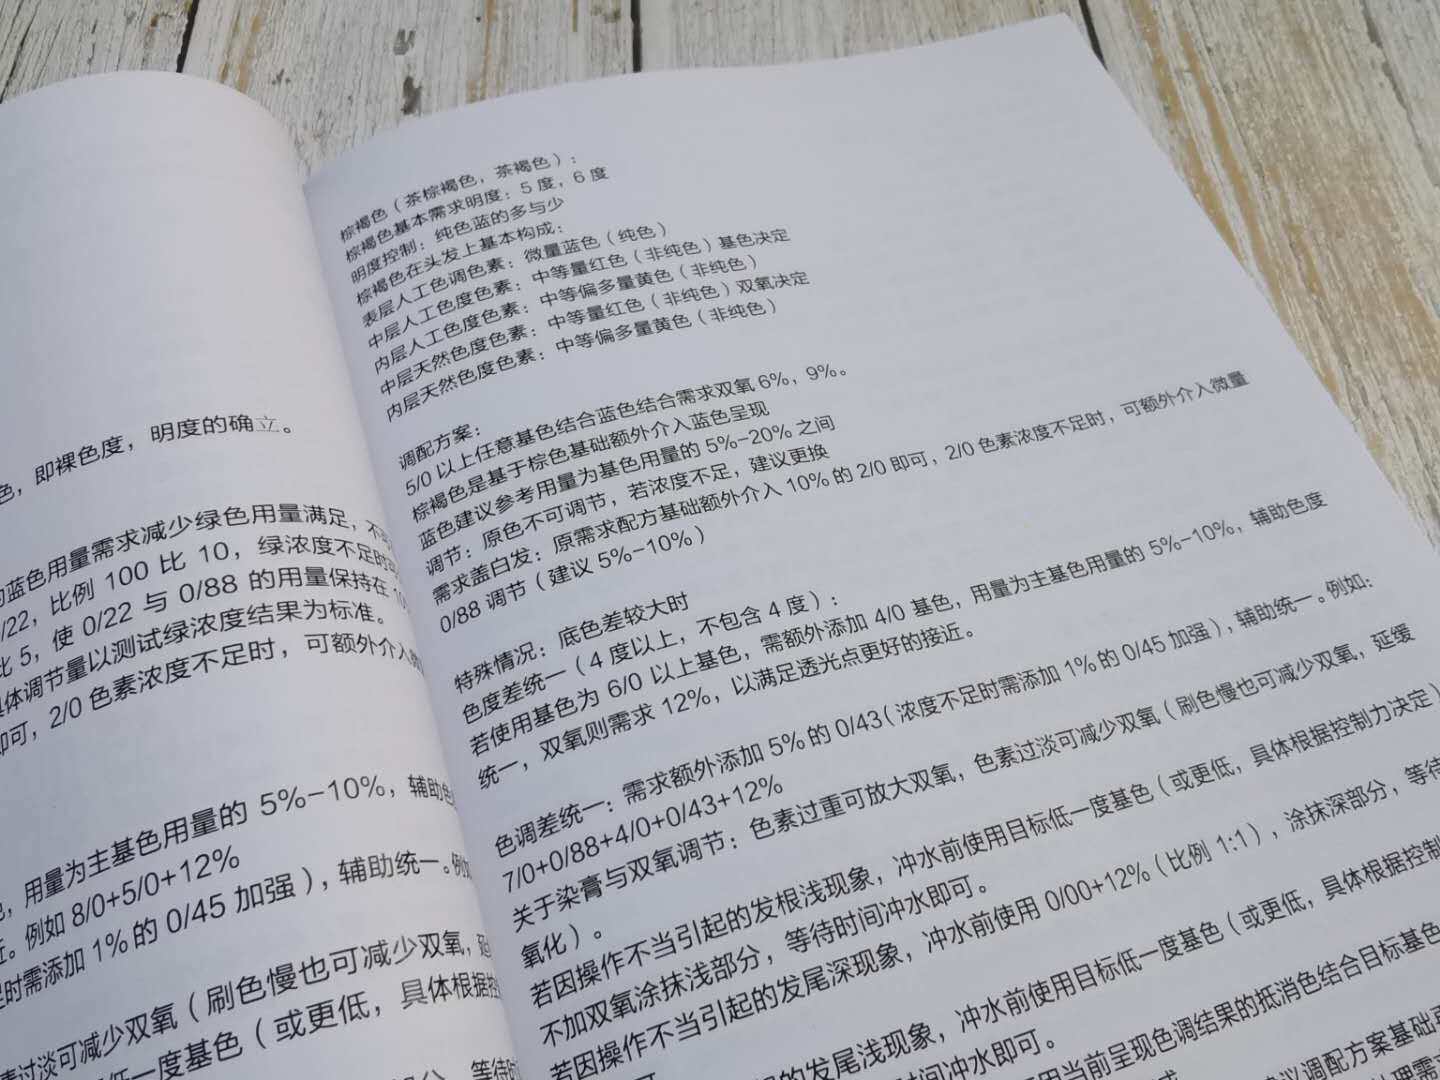 色，即裸色度，明度的确立。
的蓝色用量需求减少绿色用量满足，不
/22，比例 100 比 10，绿浓度不足时
比 5，使 0/22 与 0/88 的用量保持在 10
具体调节量以测试绿浓度结果为标准。
即可，2/0 色素浓度不足时，可额外介入
，用量为主基色用量的 5%-10%，辅助色
近。例如 8/0+5/0+12%
足时需添加 1%的 0/45 加强），辅助统一。例如
过淡可减少双氧（刷色慢也可减少双氧，延
低一度基色（或更低，具体根据控
部分，等待时
棕褐色（茶棕褐色，茶褐色）：
棕褐色基本需求明度：5 度，6 度
明度控制：纯色蓝的多与少
棕褐色在头发上基本构成：
表层人工色调色素：微量蓝色（纯色）
中层人工色度色素：中等量红色（非纯色）基色决定
内层人工色度色素：中等偏多量黄色（非纯色）
中层天然色度色素：中等量红色（非纯色）双氧决定
内层天然色度色素：中等偏多量黄色（非纯色）
调配方案：
5/0 以上任意基色结合蓝色结合需求双氧 6%，9%。
棕褐色是基于棕色基础额外介入蓝色呈现
蓝色建议参考用量为基色用量的 5%-20% 之间
调节：原色不可调节，若浓度不足，建议更换
需求盖白发：原需求配方基础额外介入 10% 的 2/0 即可，2/0 色素浓度不足时，可额外介入微量
0/88 调节（建议 5%-10%）
特殊情况：底色差较大时
色度差统一（4 度以上，不包含 4 度）：
若使用基色为 6/0 以上基色，需额外添加 4/0 基色，用量为主基色用量的 5%-10%，辅助色度
统一，双氧则需求 12%，以满足透光点更好的接近。
色调差统一：需求额外添加 5%的 0/43（浓度不足时需添加 1%的 0/45 加强），辅助统一。例如：
7/0+0/88+4/0+0/43+12%
关于染膏与双氧调节：色素过重可放大双氧，色素过淡可减少双氧（刷色慢也可减少双氧，延缓
氧化）。
若因操作不当引起的发根浅现象，冲水前使用目标低一度基色（或更低，具体根据控制力决定）
不加双氧涂抹浅部分，等待时间冲水即可。
若因操作不当引起的发尾深现象，冲水前使用 0/00+12%（比例 1:1），涂抹深部分，等待
的发尾浅现象，冲水前使用目标低一度基色（或更低，具体根据控制
时间冲水即可。
用当前呈现色调结果的抵消色结合目标基色
议调配方案基础